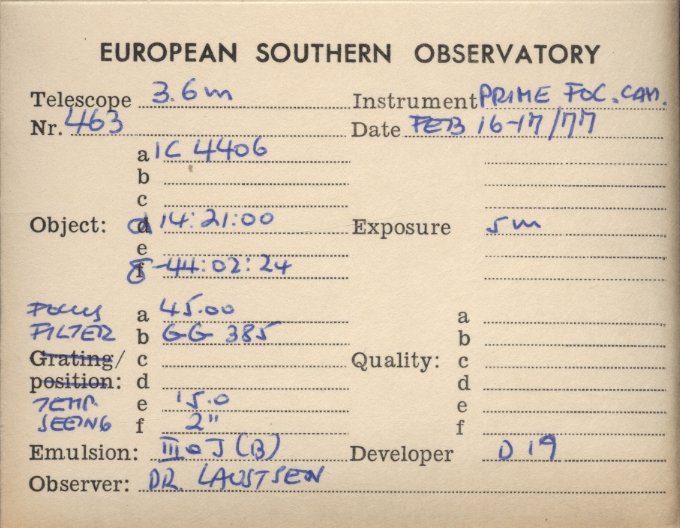 EUROPEAN SOUTHERN OBSERVATORY
Telescope 3.6m Instrument PRIME FOC. CAM.
Nr. 463 Date FEB 16-17/77
a IC 4406
b
c
Object: α 14:21:00 Exposure 5m
e
δ -44:02:24
FOCUS a 45.00 a
FILTER b GG 385 b
Grating/ c Quality: c
position: d d
TEMP. e 15.0 e
SEEING f 2" f
Emulsion: IIIaJ (B) Developer D 19
Observer: DR. LAUSTSEN